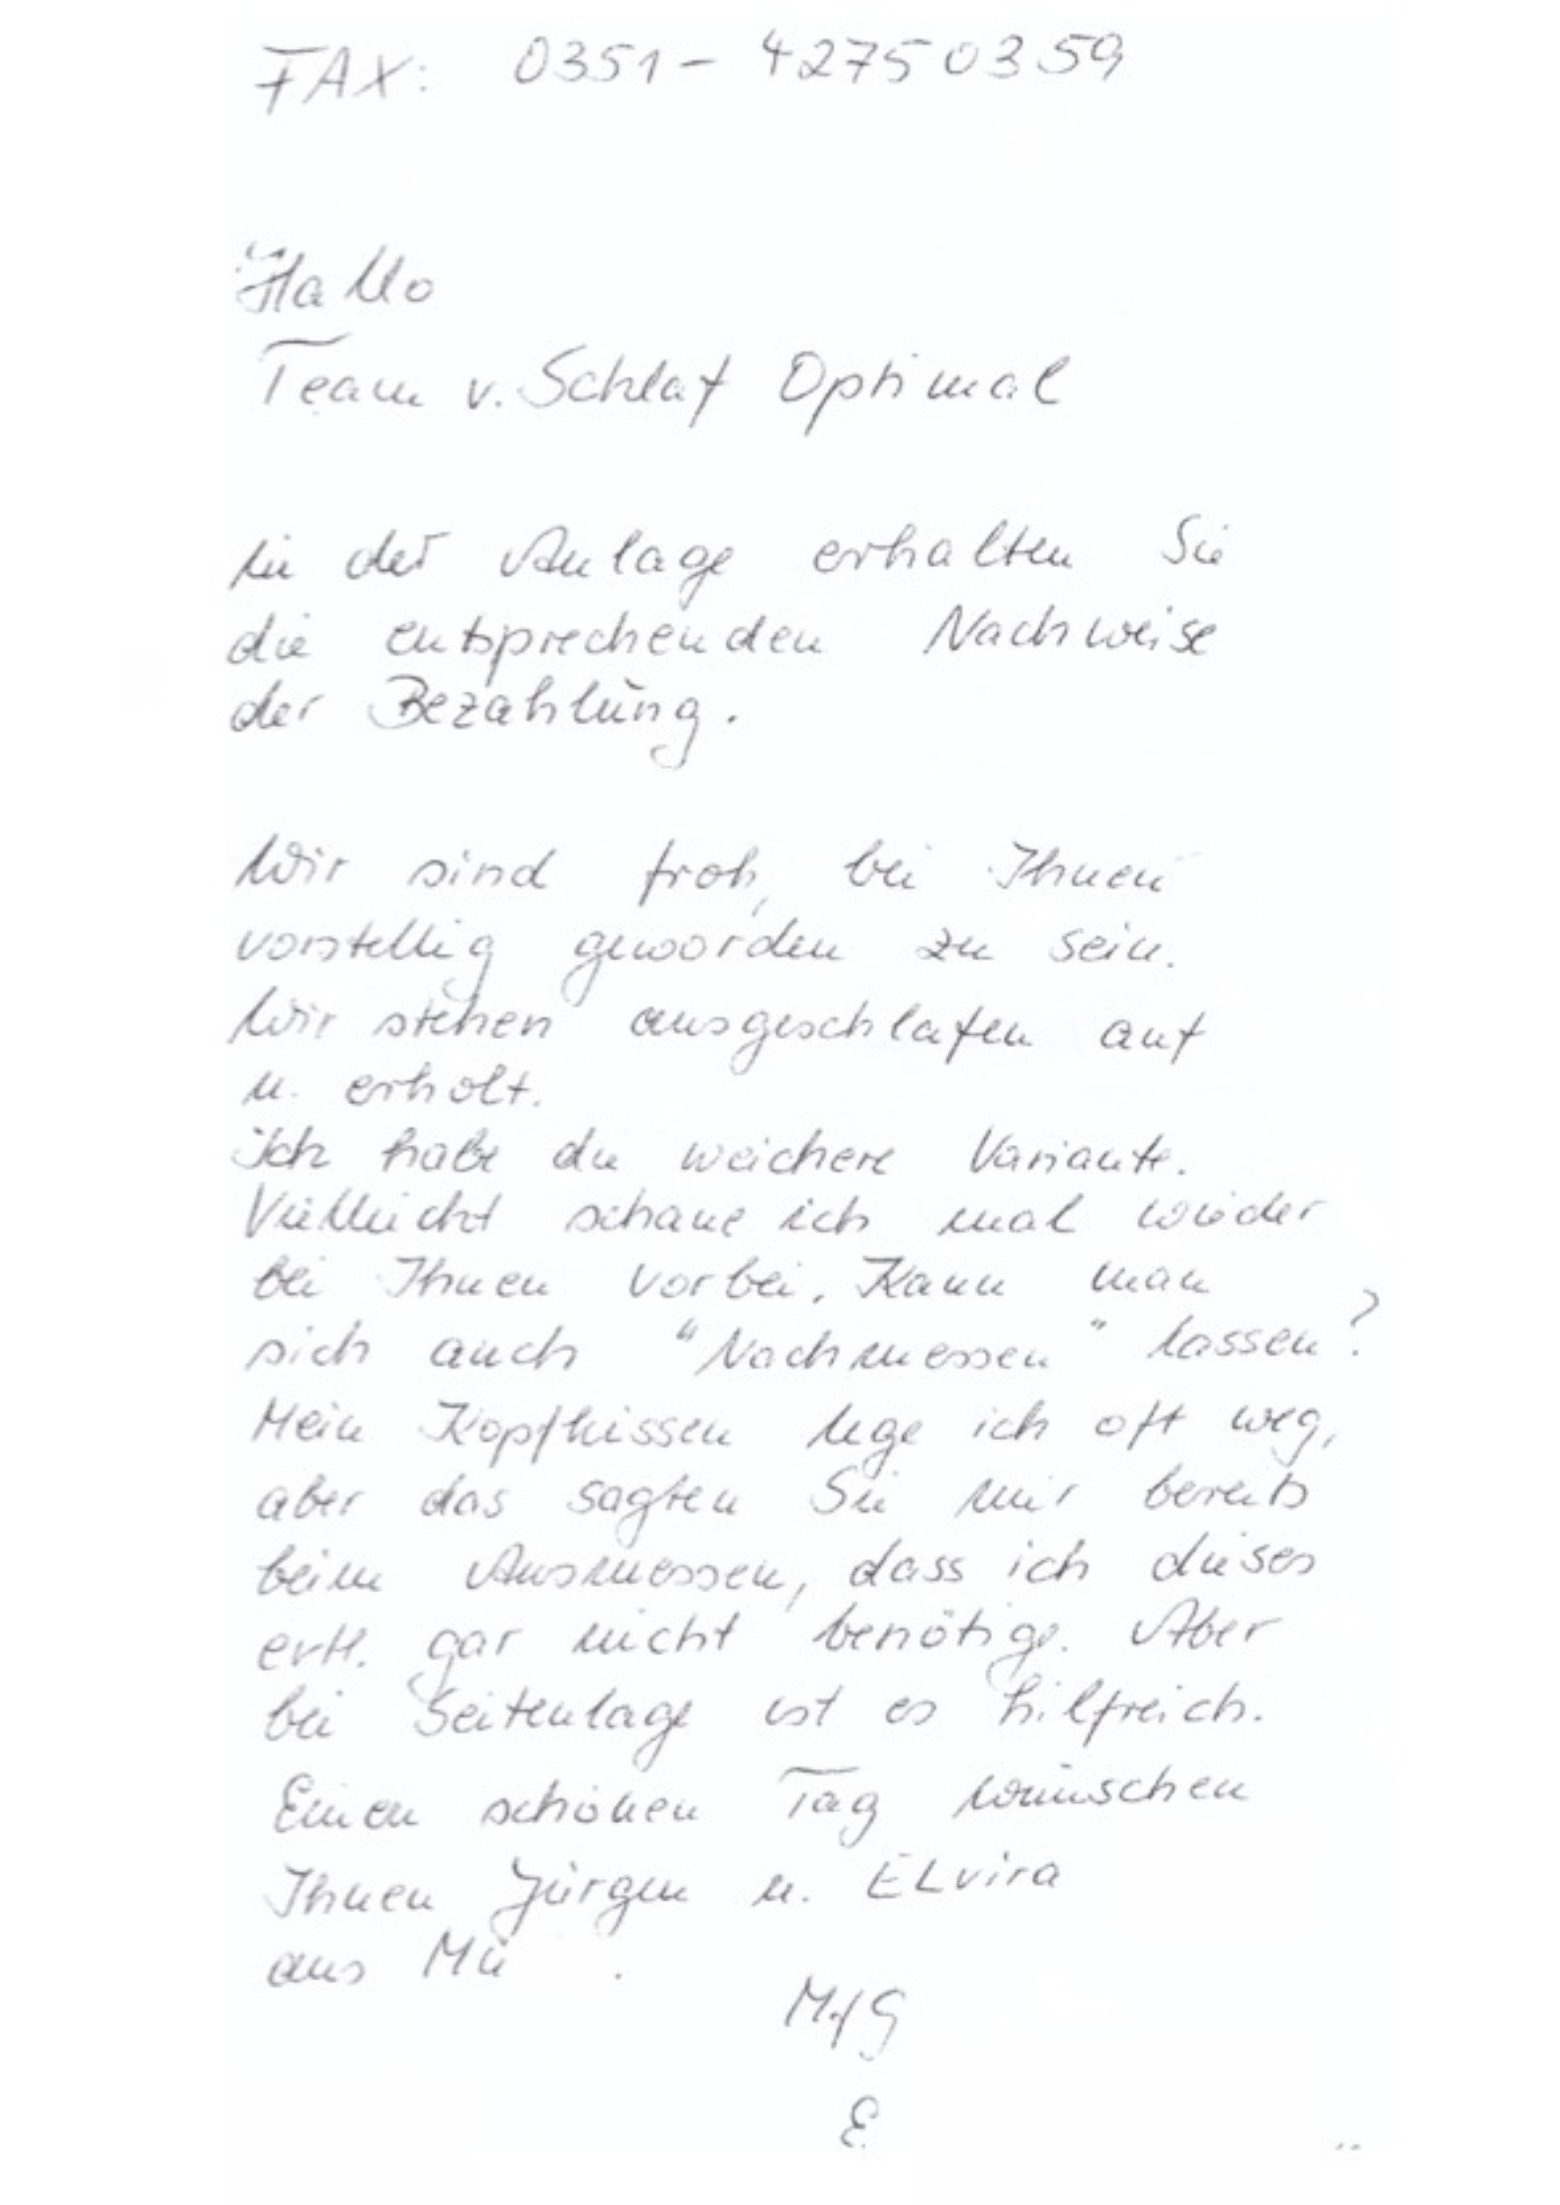 FAX: 0351 - 42750359
Hallo
Team v. Schlaf Optimal
In der Anlage erhalten Sie
die entsprechenden Nachweise
der Bezahlung.
Wir sind froh, bei Ihnen
vorstellig geworden zu sein.
Wir stehen ausgeschlafen auf
u. erholt.
Ich habe die weichere Variante.
Vielleicht schaue ich mal wieder
bei Ihnen vorbei. Kann man
sich auch "Nachmessen" lassen?
Mein Kopfkissen lege ich oft weg,
aber das sagten Sie mir bereits
beim Ausmessen, dass ich dieses
evtl. gar nicht benötige. Aber
bei Seitenlage ist es hilfreich.
Einen schönen Tag wünschen
Ihnen Jürgen u. Elvira
aus Mü .
MfG
E.